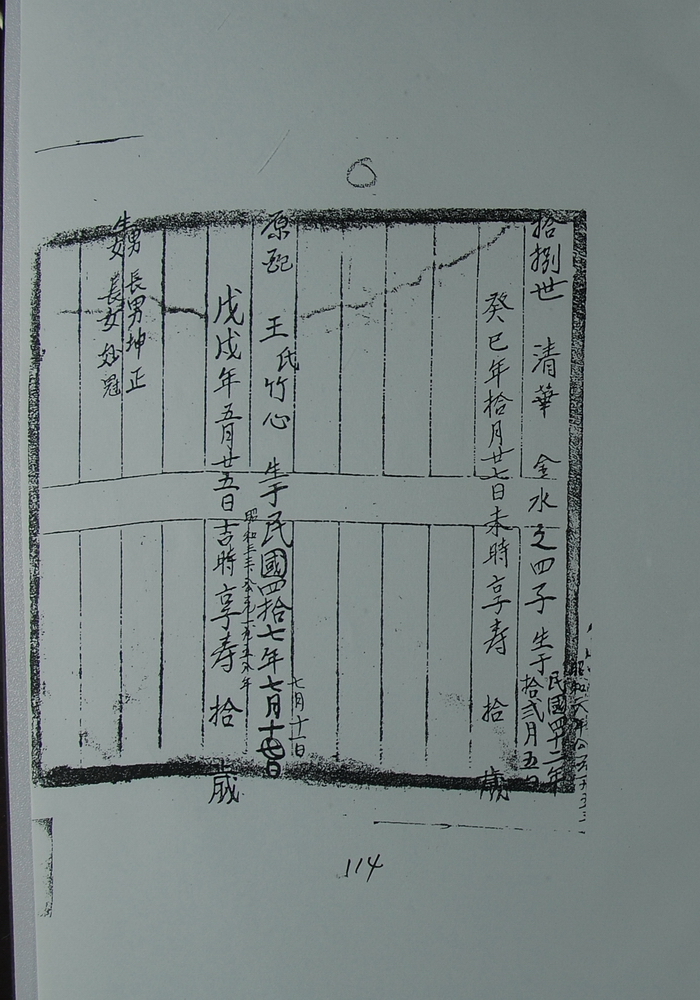 拾捌世　清華　金水之四子　生于民國四十二年
拾弍月五日
癸巳年拾月廿七日未時享寿　拾　歲
原配　王氏竹心　生于民國四拾七年七月十四日
七月十一日
戊戌年五月廿五日吉時享寿　拾　歲
生男　長男坤正
生女　長女妙冠
114